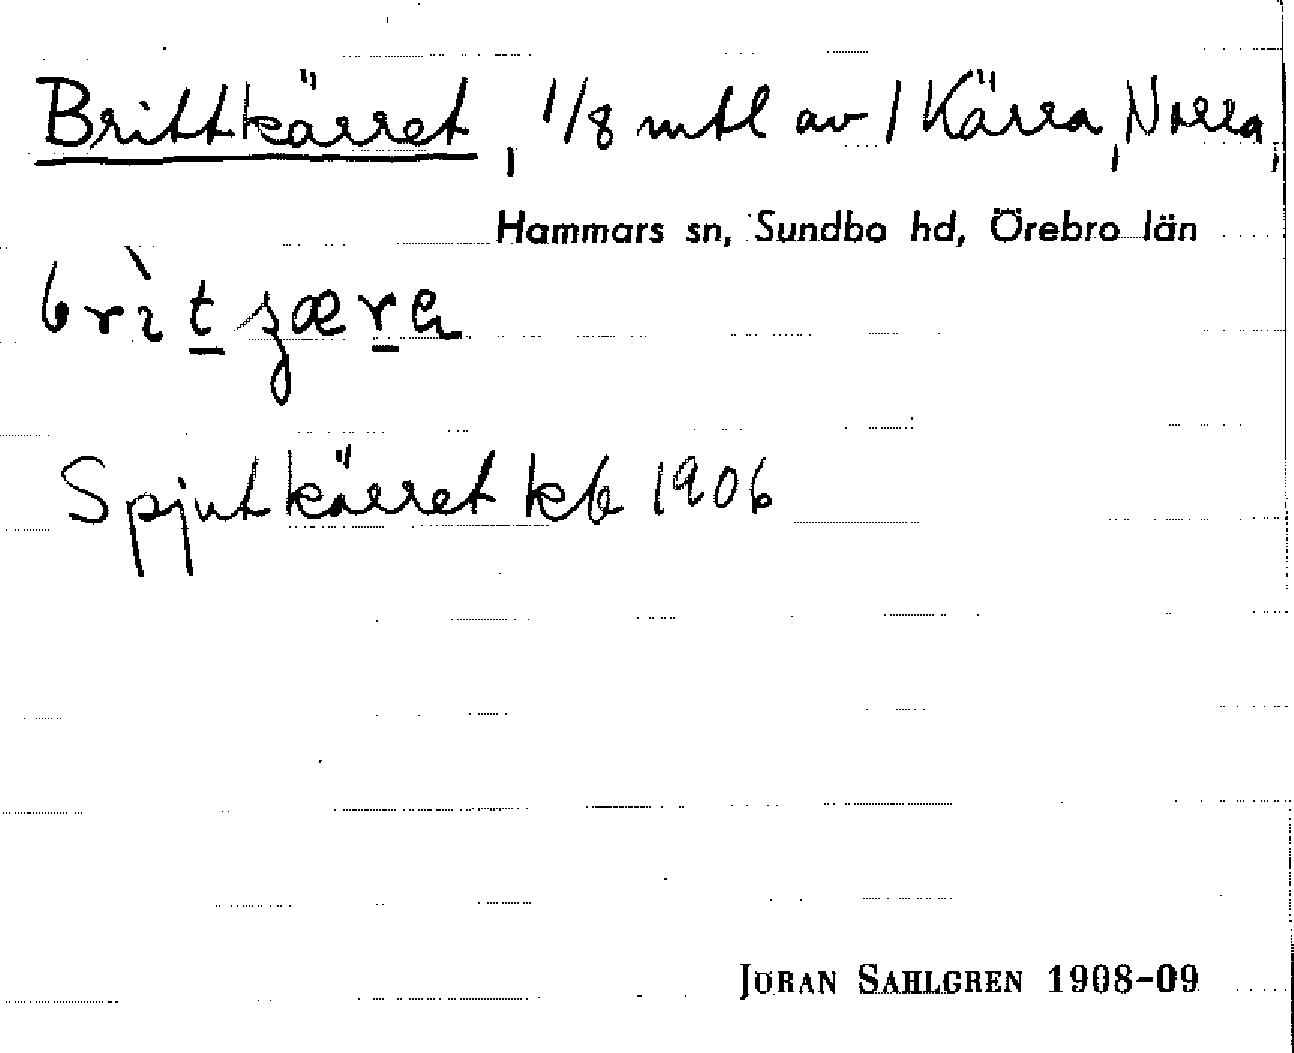 Brittkärret, 1/8 mtl av 1 Kärra, Norra,
Hammars sn, Sundbo hd, Örebro län
Spjutkärret kb 1906
JÖRAN SAHLGREN 1908-09